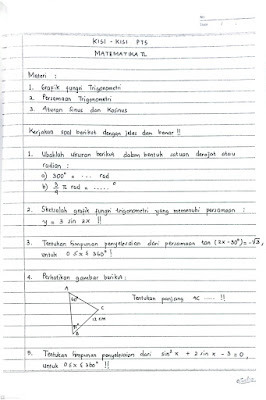 No.
Date
KISI - KISI PTS
MATEMATIKA TL
Materi :
1. Grafik fungsi Trigonometri
2. Persamaan Trigonometri
3. Aturan Sinus dan Kosinus
Kerjakan soal berikut dengan jelas dan benar !!
1. Ubahlah ukuran berikut dalam bentuk satuan derajat atau
radian :
a) 300° = ... rad
b) π rad = ..... °
2. Sketsalah grafik fungsi trigonometri yang memenuhi persamaan :
y = 3 sin 2x !!
3. Tentukan himpunan penyelesaian dari persamaan tan (2x - 30°) = -√3,
untuk 0 ≤ x ≤ 360° !
4. Perhatikan gambar berikut :
A
C
12 cm
B
Tentukan panjang AC ..... !!
5. Tentukan himpunan penyelesaian dari sin² x + 2 sin x - 3 = 0,
untuk 0 ≤ x ≤ 360° !